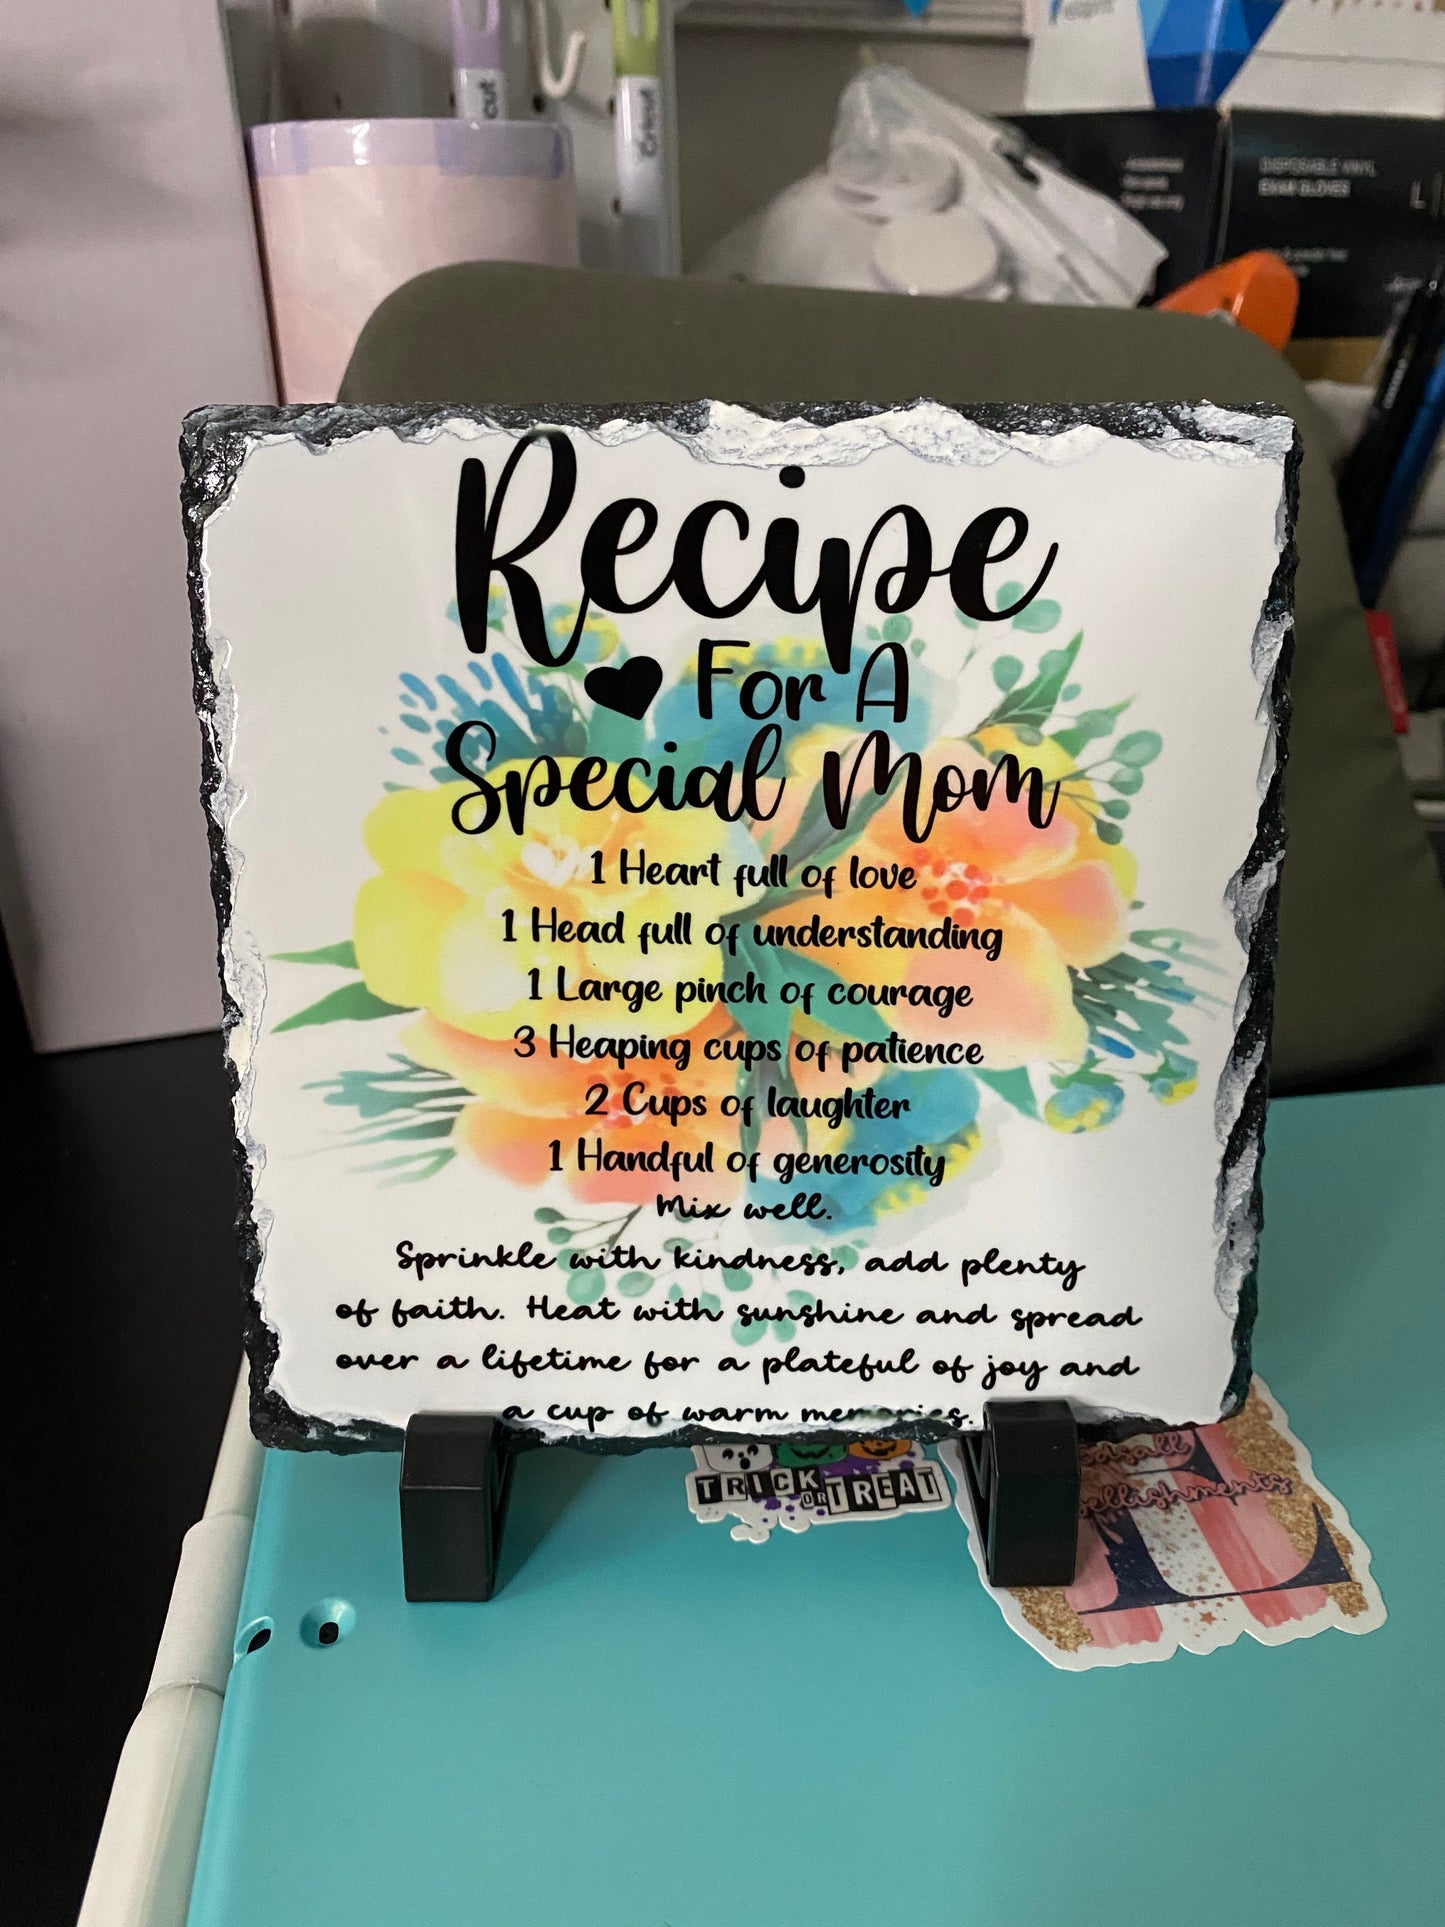 cricut
DISPOSABLE VINYL
EXAM GLOVES
L
Recipe
For A
Special Mom
1 Heart full of love
1 Head full of understanding
1 Large pinch of courage
3 Heaping cups of patience
2 Cups of laughter
1 Handful of generosity
Mix well.
Sprinkle with kindness, add plenty
of faith. Heat with sunshine and spread
over a lifetime for a plateful of joy and
a cup of warm memories.
TRICK
OR TREAT
E